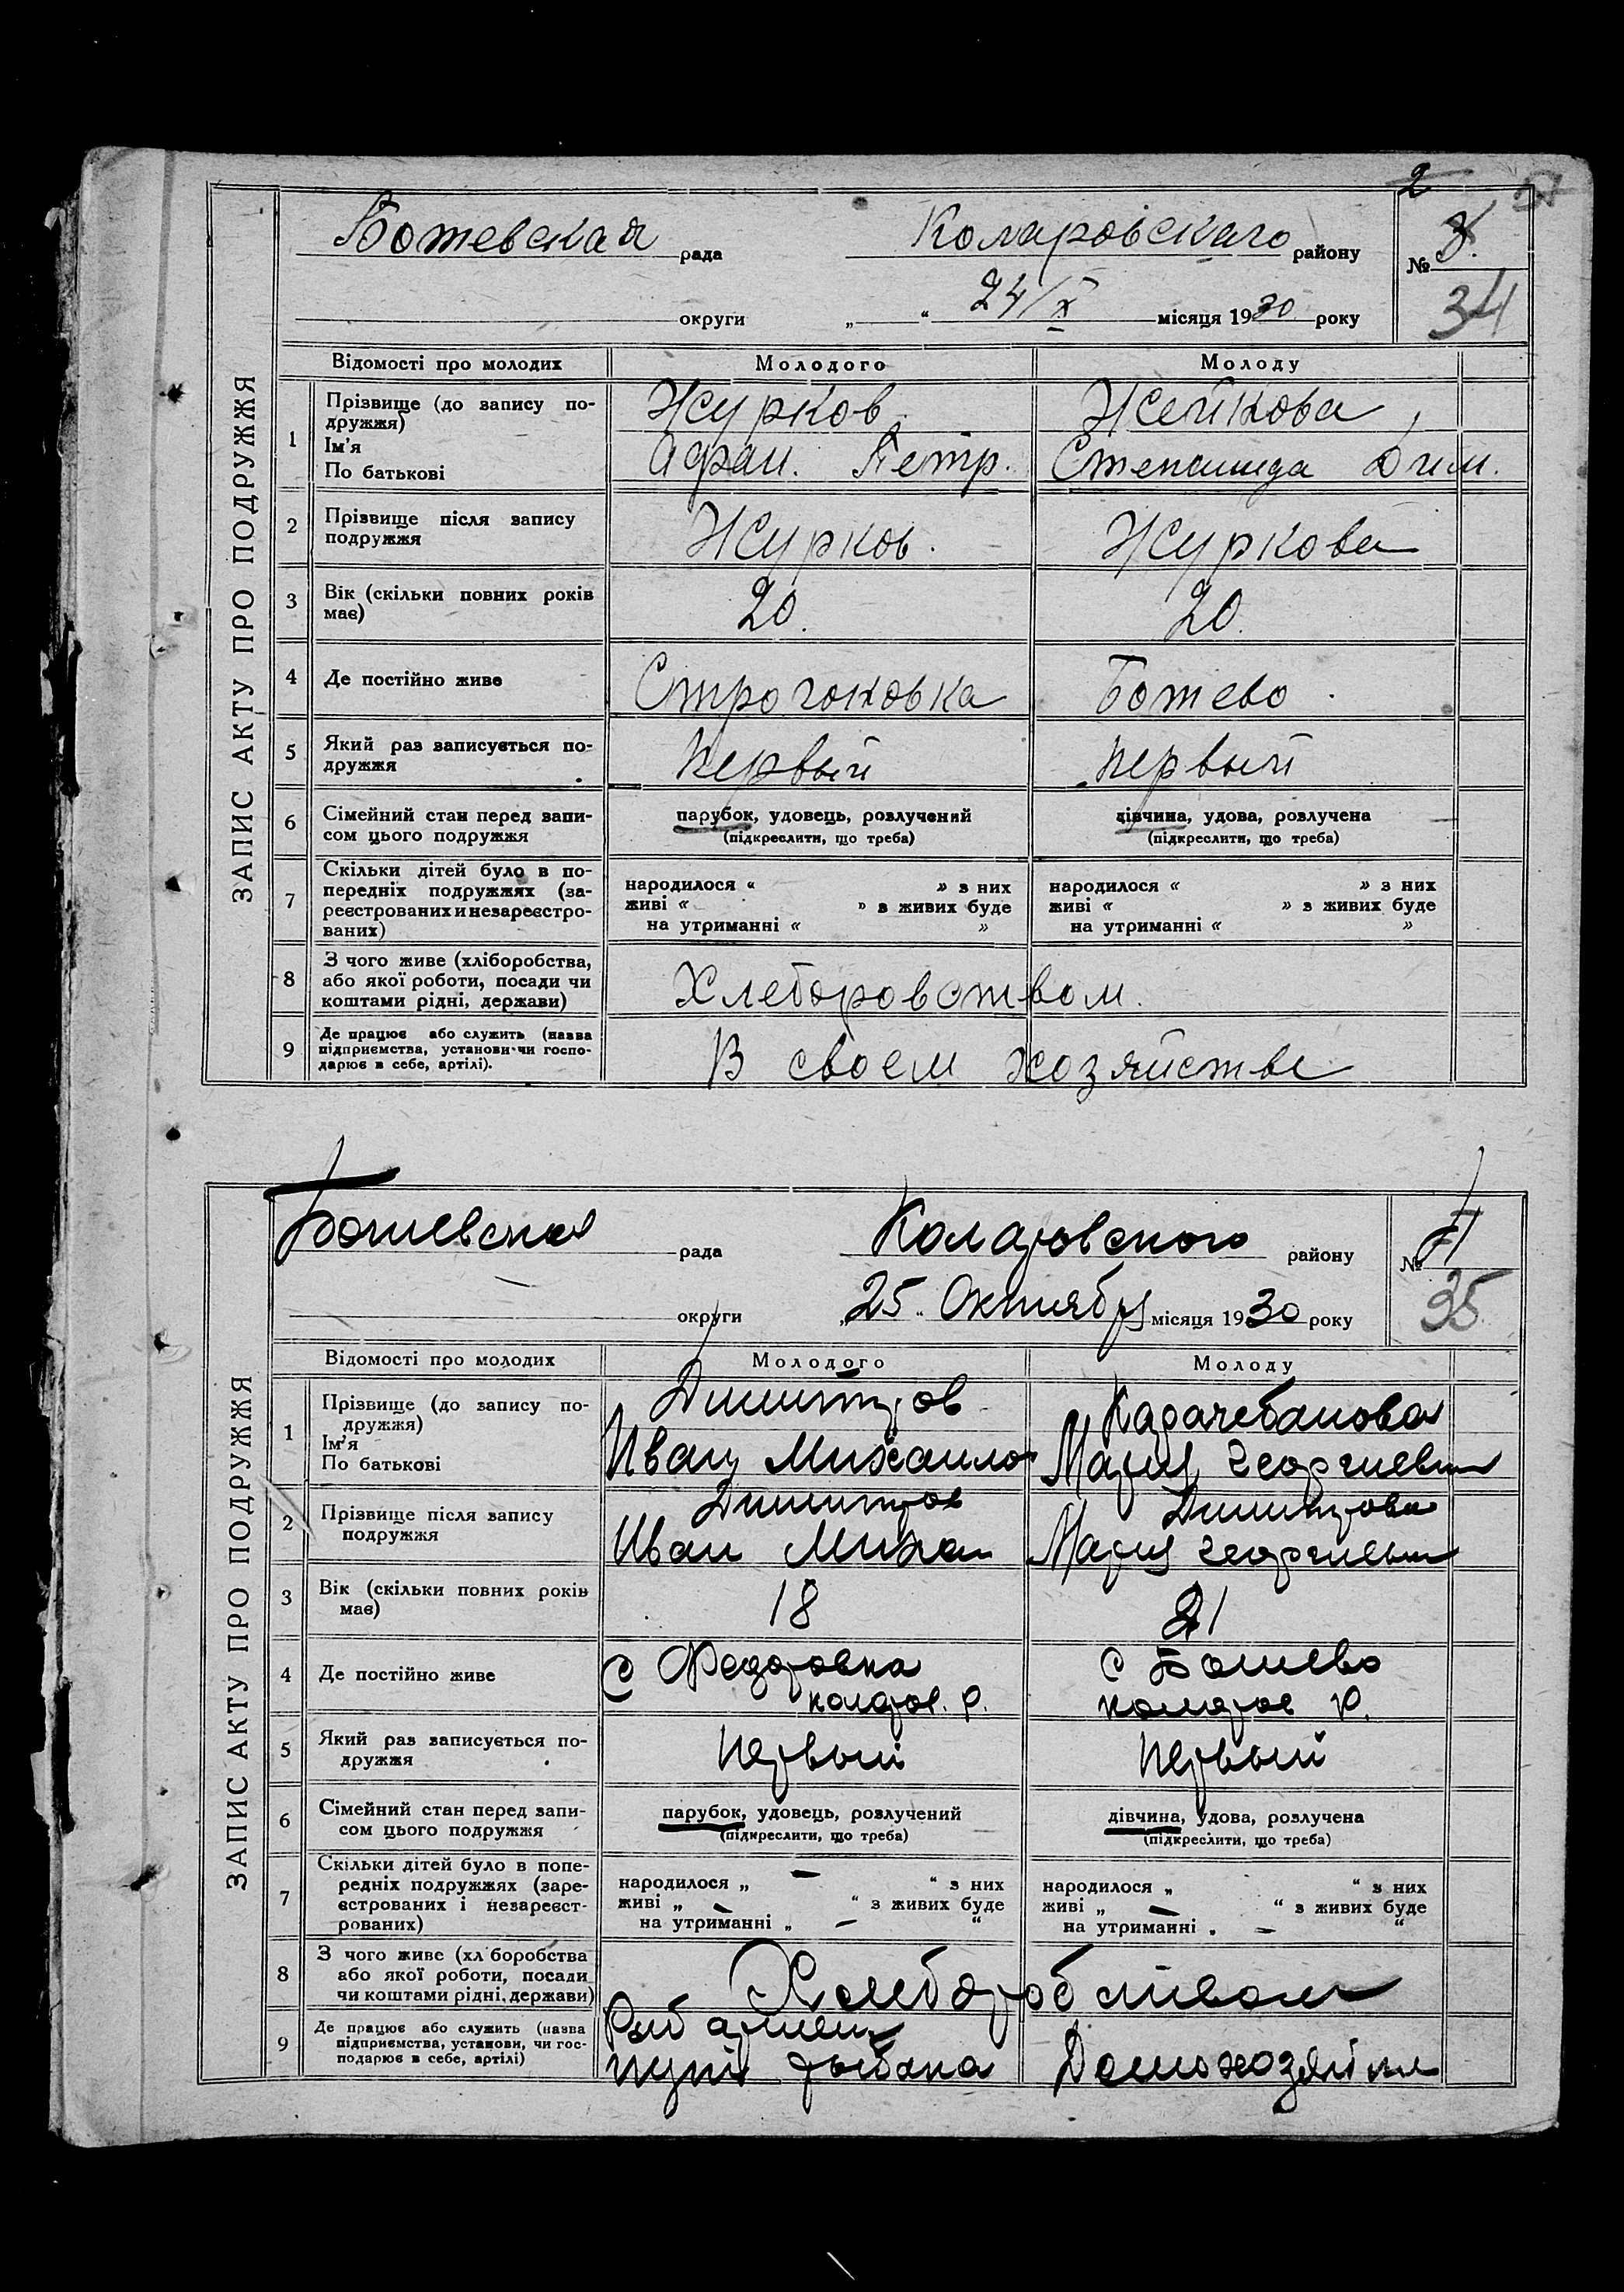 2
Ботевская рада Коларовскаго району № 3.
округи „ “ 24/X місяця 1930 року 34
ЗАПИС АКТУ ПРО ПОДРУЖЖЯ
Відомості про молодих Молодого Молоду
1 Прізвище (до запису по-
дружжя)
Ім'я
По батькові
Журков Жейкова,
Афан. Петр. Степанида Дим.
2 Прізвище після запису
подружжя
Журков. Журкова
3 Вік (скільки повних років
має)
20. 20.
4 Де постійно живе Строгоковка Ботево.
5 Який раз записується по-
дружжя
первый первый
6 Сімейний стан перед запи-
сом цього подружжя
парубок, удовець, розлучений дівчина, удова, розлучена
(підкреслити, що треба) (підкреслити, що треба)
7 Скільки дітей було в по-
передніх подружжях (за-
реєстрованих и незареєстро-
ваних)
народилося “ » з них народилося “ » з них
живі “ » з живих буде живі “ » з живих буде
на утриманні “ » на утриманні “ »
8 З чого живе (хліборобства,
або якої роботи, посади чи
коштами рідні, держави)
Хлеборовством.
9 Де працює або служить (назва
підприємства, установи чи госпо-
дарює в себе, артілі).
В своем хозяйстве
Ботевская рада Коларовского району №
округи „25“ Октября місяця 1930 року 35
ЗАПИС АКТУ ПРО ПОДРУЖЖЯ
Відомості про молодих Молодого Молоду
1 Прізвище (до запису по-
дружжя)
Ім'я
По батькові
Димитров Карачебанова
Иван Михаилов Мария Георгиевна
2 Прізвище після запису
подружжя
Димитров Димитрова
Иван Михаи Мария Георгиевна
3 Вік (скільки повних років
має)
18 21
4 Де постійно живе
с Федоровка с Ботево
коларов. р. коларов р.
5 Який раз записується по-
дружжя
Первый Первый
6 Сімейний стан перед запи-
сом цього подружжя
парубок, удовець, розлучений дівчина, удова, розлучена
(підкреслити, що треба) (підкреслити, що треба)
7 Скільки дітей було в попе-
редніх подружжях (заре-
єстрованих і незареєст-
рованих)
народилося „ — “ з них народилося „ “ з них
живі „ — “ з живих буде живі „ — “ з живих буде
на утриманні „ — “ на утриманні „ — “
8 З чого живе (хл боробства
або якої роботи, посади
чи коштами рідні, держави)
Хлеборобством
9 Де працює або служить (назва
підприємства, установи, чи гос-
подарює в себе, артілі)
рыбака Домохозяйка